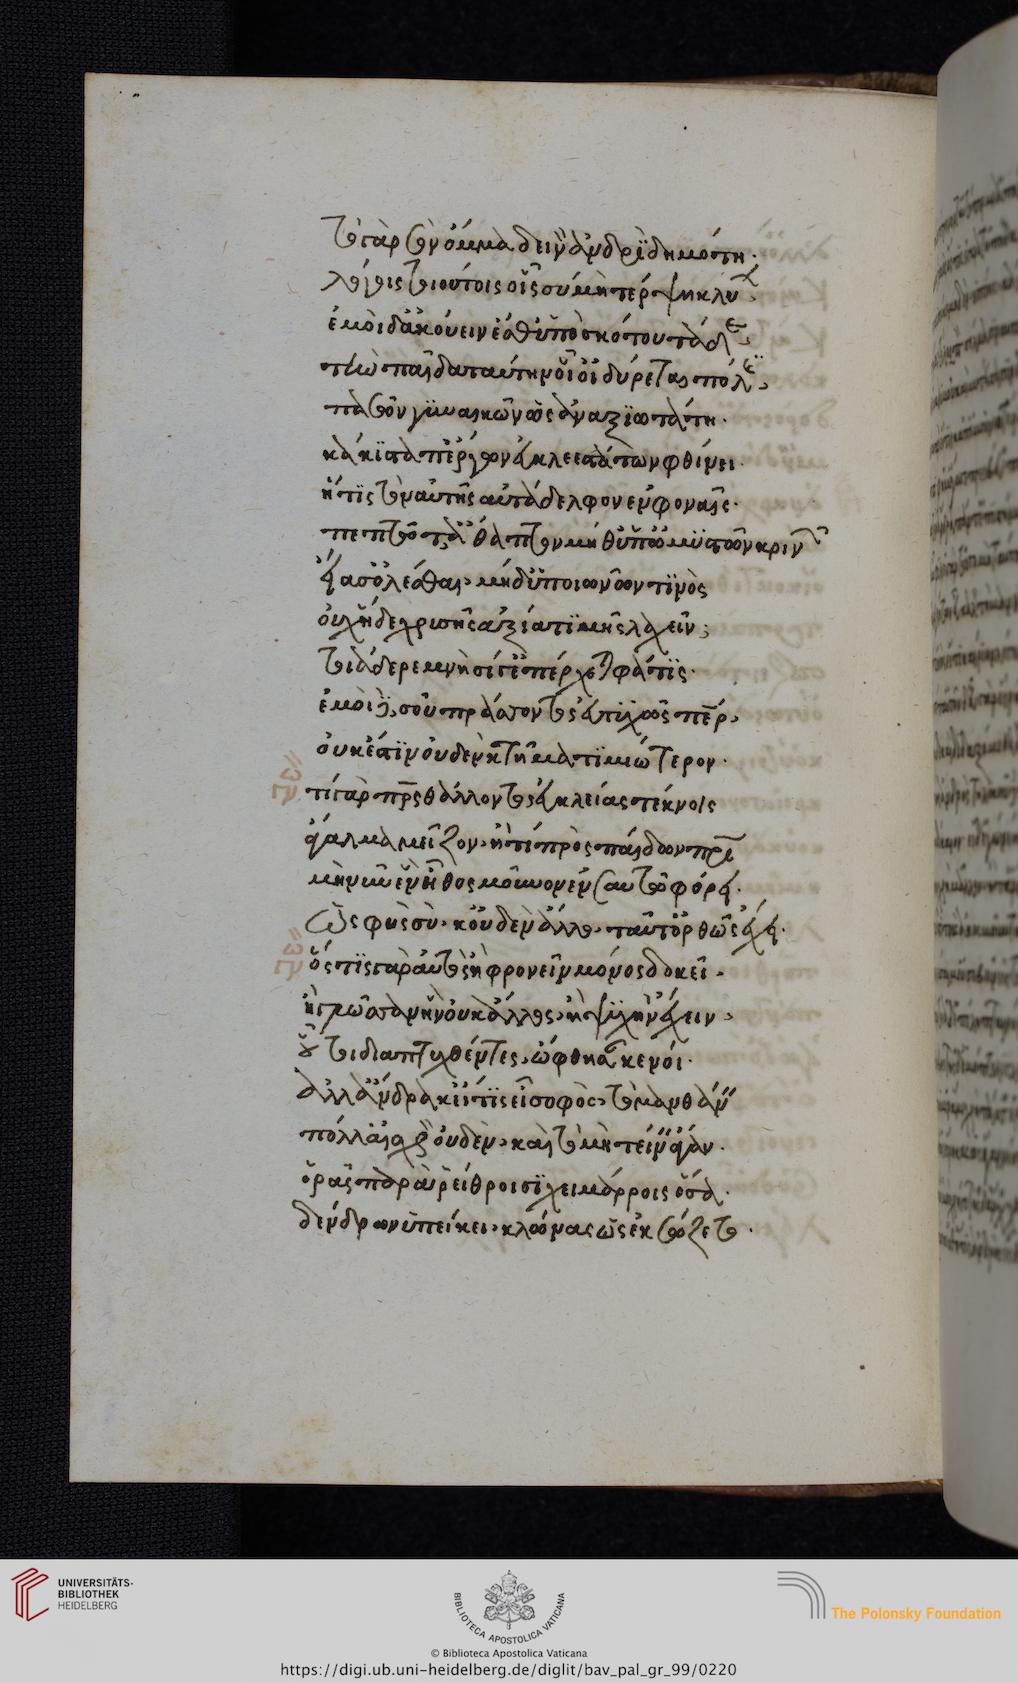 τὸ γὰρ σὸν ὄμμα δεινὸν ἀνδρὶ δημότη·
λόγοις τοιούτοις οἷς σὺ μὴ τέρψη κλύων,
ἐμοὶ δ' ἀκούειν ἔσθ' ὑπὸ σκότου τάδε,
τὴν παῖδα ταύτην οἷ' ὀδύρεται πόλις,
πασῶν γυναικῶν ὡς ἀναξιωτάτη·
κάκιστ' ἀπ' ἔργων εὐκλεεστάτων φθίνει·
ἥτις τὸν αὑτῆς αὐτάδελφον ἐν φοναῖς·
πεπτῶτ' ἄθαπτον μήθ' ὑπ' ὠμηστῶν κυνῶν
εἴασ' ὀλέσθαι· μήθ' ὑπ' οἰωνῶν τινὸς
οὐχ ἥδε χρυσῆς ἀξία τιμῆς λαχεῖν;
τοιάδ' ἐρεμνὴ σῖγ' ἐπέρχεται φάτις·
ἐμοὶ δὲ, σοῦ πράσσοντος εὐτυχῶς πάτερ,
οὐκ ἔστιν οὐδὲν κτῆμα τιμιώτερον·
τί γὰρ πατρὸς θάλλοντος εὐκλείας τέκνοις
ἄγαλμα μεῖζον· ἢ τί πρὸς παίδων πατρί
μὴ νῦν ἓν ἦθος μοῦνον ἐν σαυτῷ φόρει·
ὡς φὴς σὺ· κοὐδὲν ἄλλο· ταῦτ' ὀρθῶς ἔχει·
ὅστις γὰρ αὐτὸς ἢ φρονεῖν μόνος δοκεῖ·
ἢ γλῶσσαν ἣν οὐκ ἄλλος· ἢ ψυχὴν ἔχειν,
οὗτοι διαπτυχθέντες, ὤφθησαν κενοί·
ἀλλ' ἄνδρα κεἴ τις εἶ σοφὸς· τὸ μανθάνειν
πόλλ' αἰσχρὸν οὐδὲν· καὶ τὸ μὴ τείνειν ἄγαν·
ὁρᾶς παρὰ ῥείθροισι χειμάρροις ὅσα·
δένδρων ὑπείκει· κλῶνας ὡς ἐκσώζεται·
UNIVERSITÄTS-
BIBLIOTHEK
HEIDELBERG
BIBLIOTECA APOSTOLICA VATICANA
The Polonsky Foundation
© Biblioteca Apostolica Vaticana
https://digi.ub.uni-heidelberg.de/diglit/bav_pal_gr_99/0220